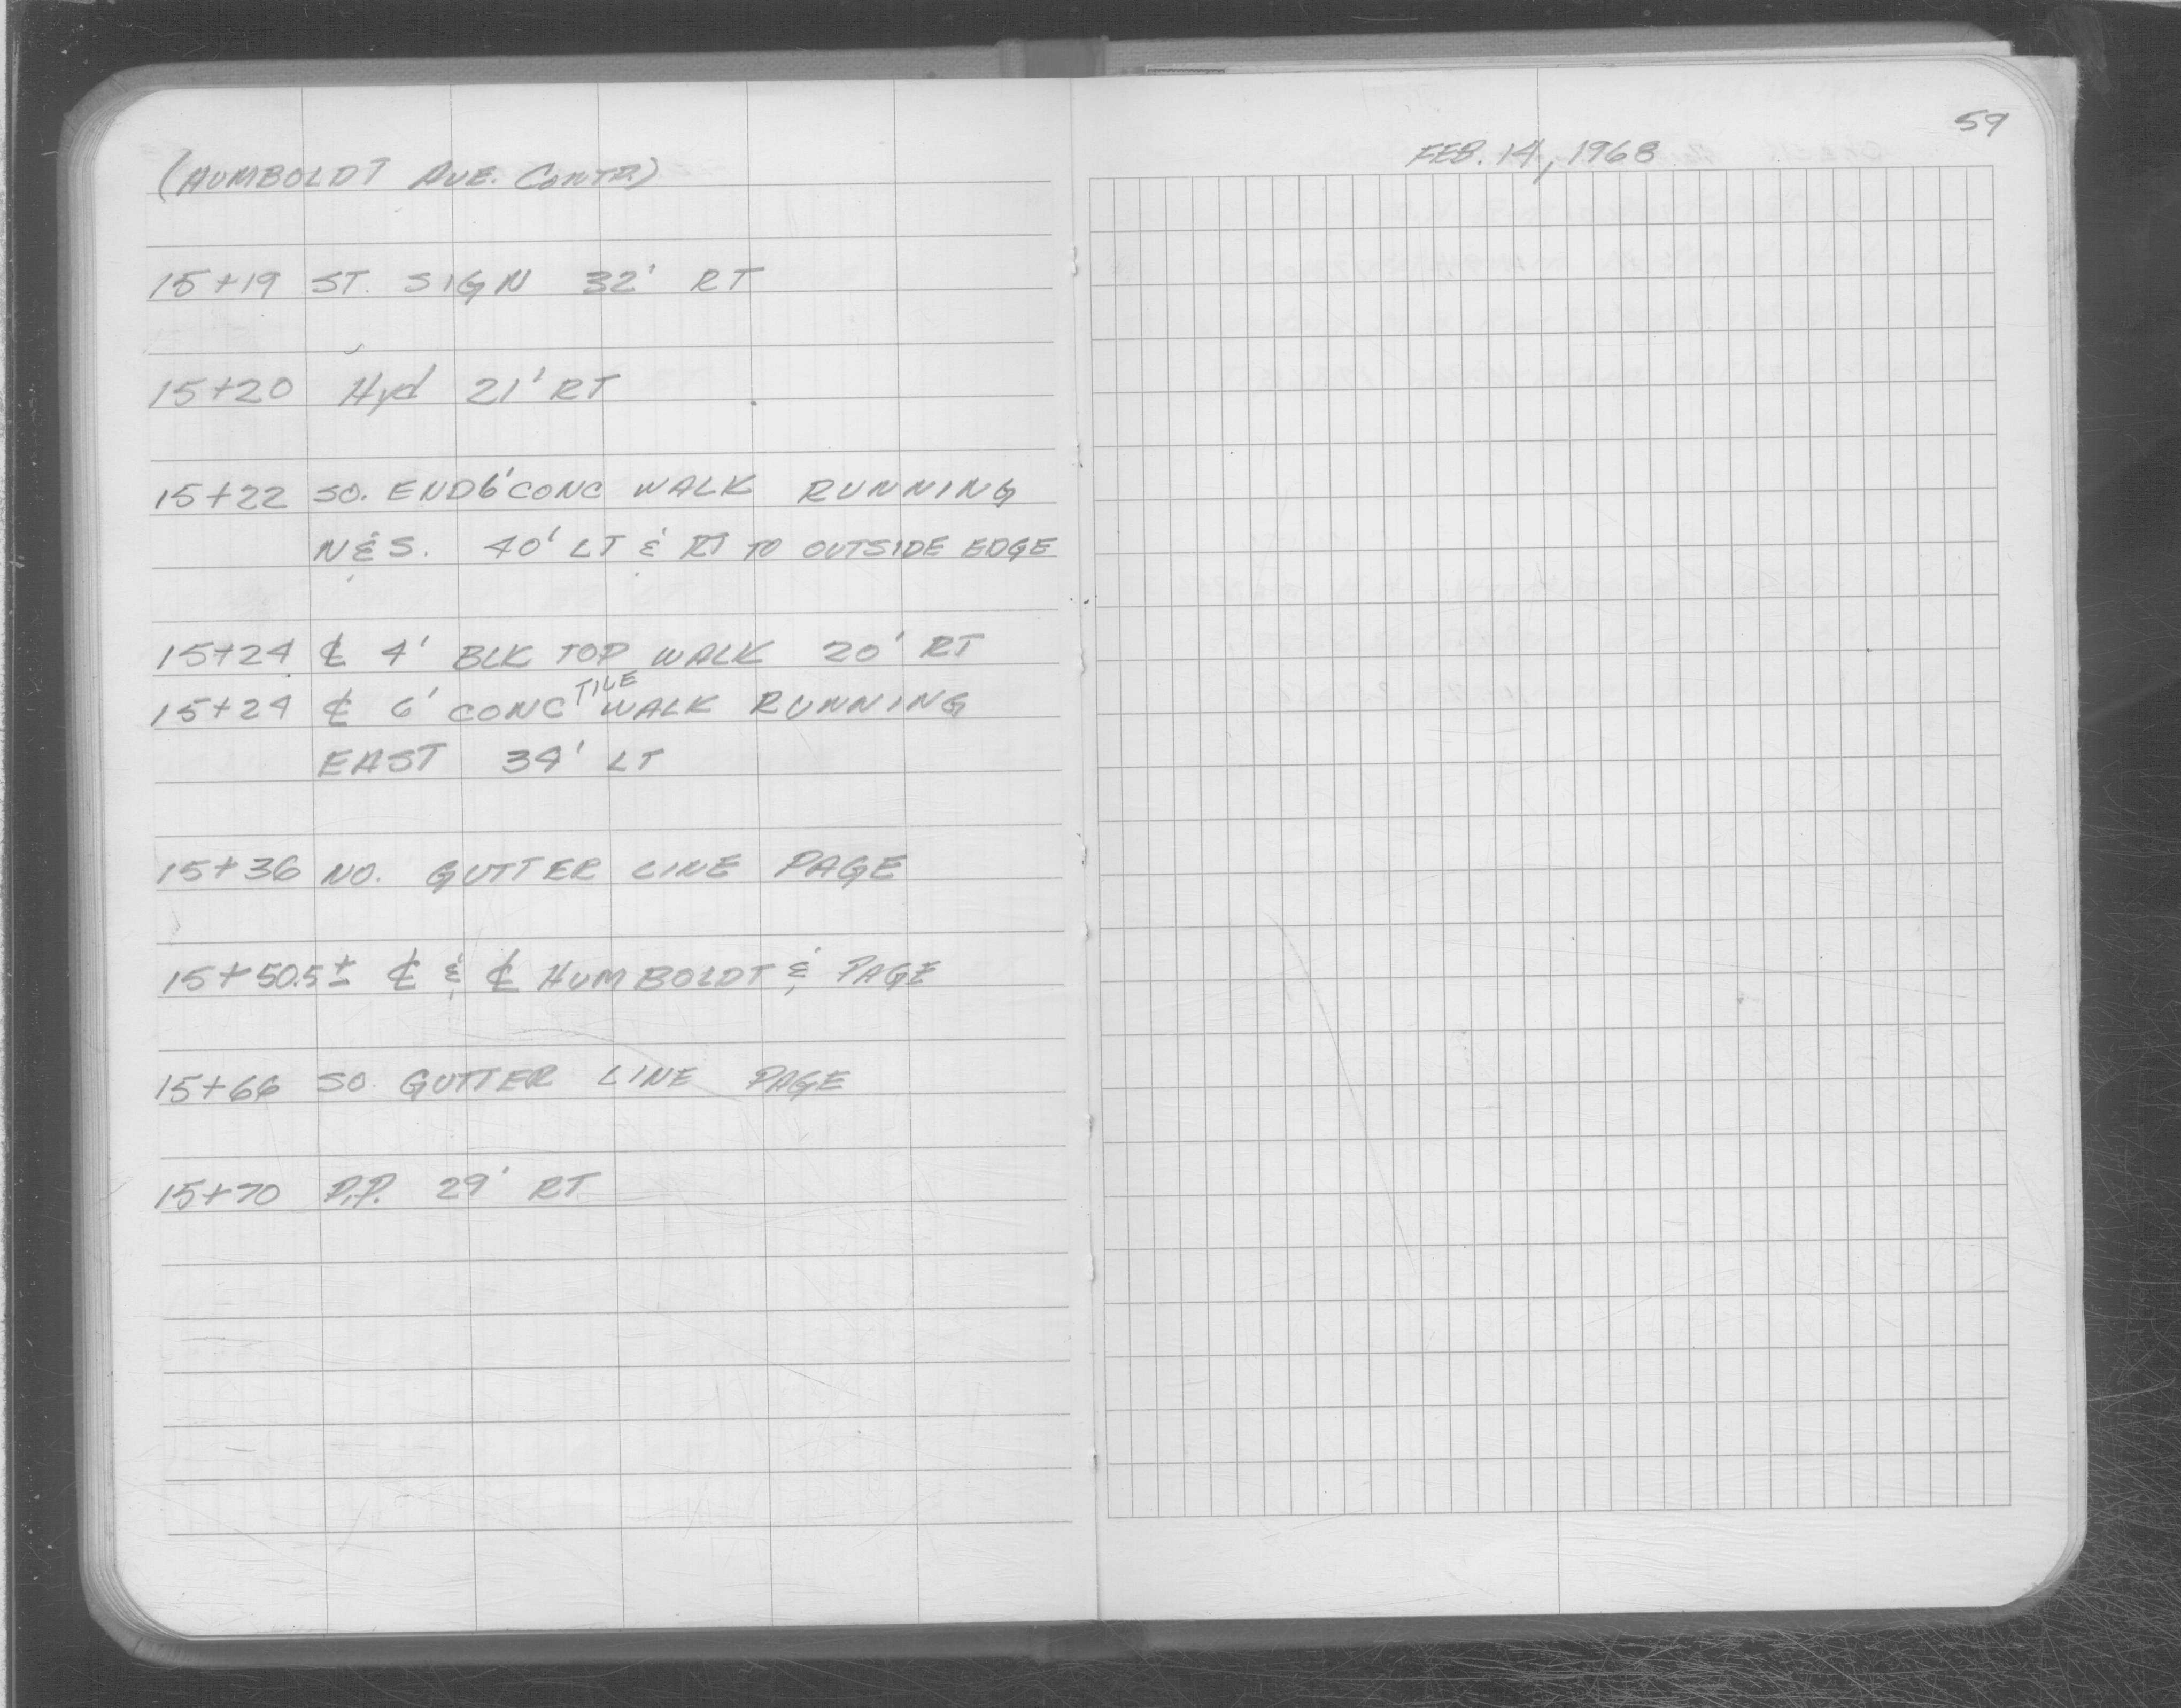 (HUMBOLDT AVE. CONTD.)
15+19 ST. SIGN 32' RT
15+20 Hyd 21' RT
15+22 SO. END 6' CONC WALK RUNNING
N & S. 40' LT & RT TO OUTSIDE EDGE
15+24 ℄ 4' BLK TOP WALK 20' RT
15+24 ℄ 6' CONC TILE WALK RUNNING
EAST 34' LT
15+36 NO. GUTTER LINE PAGE
15+50.5± ℄ & ℄ HUMBOLDT & PAGE
15+66 SO. GUTTER LINE PAGE
15+70 P.P. 29' RT
59
FEB. 14, 1968